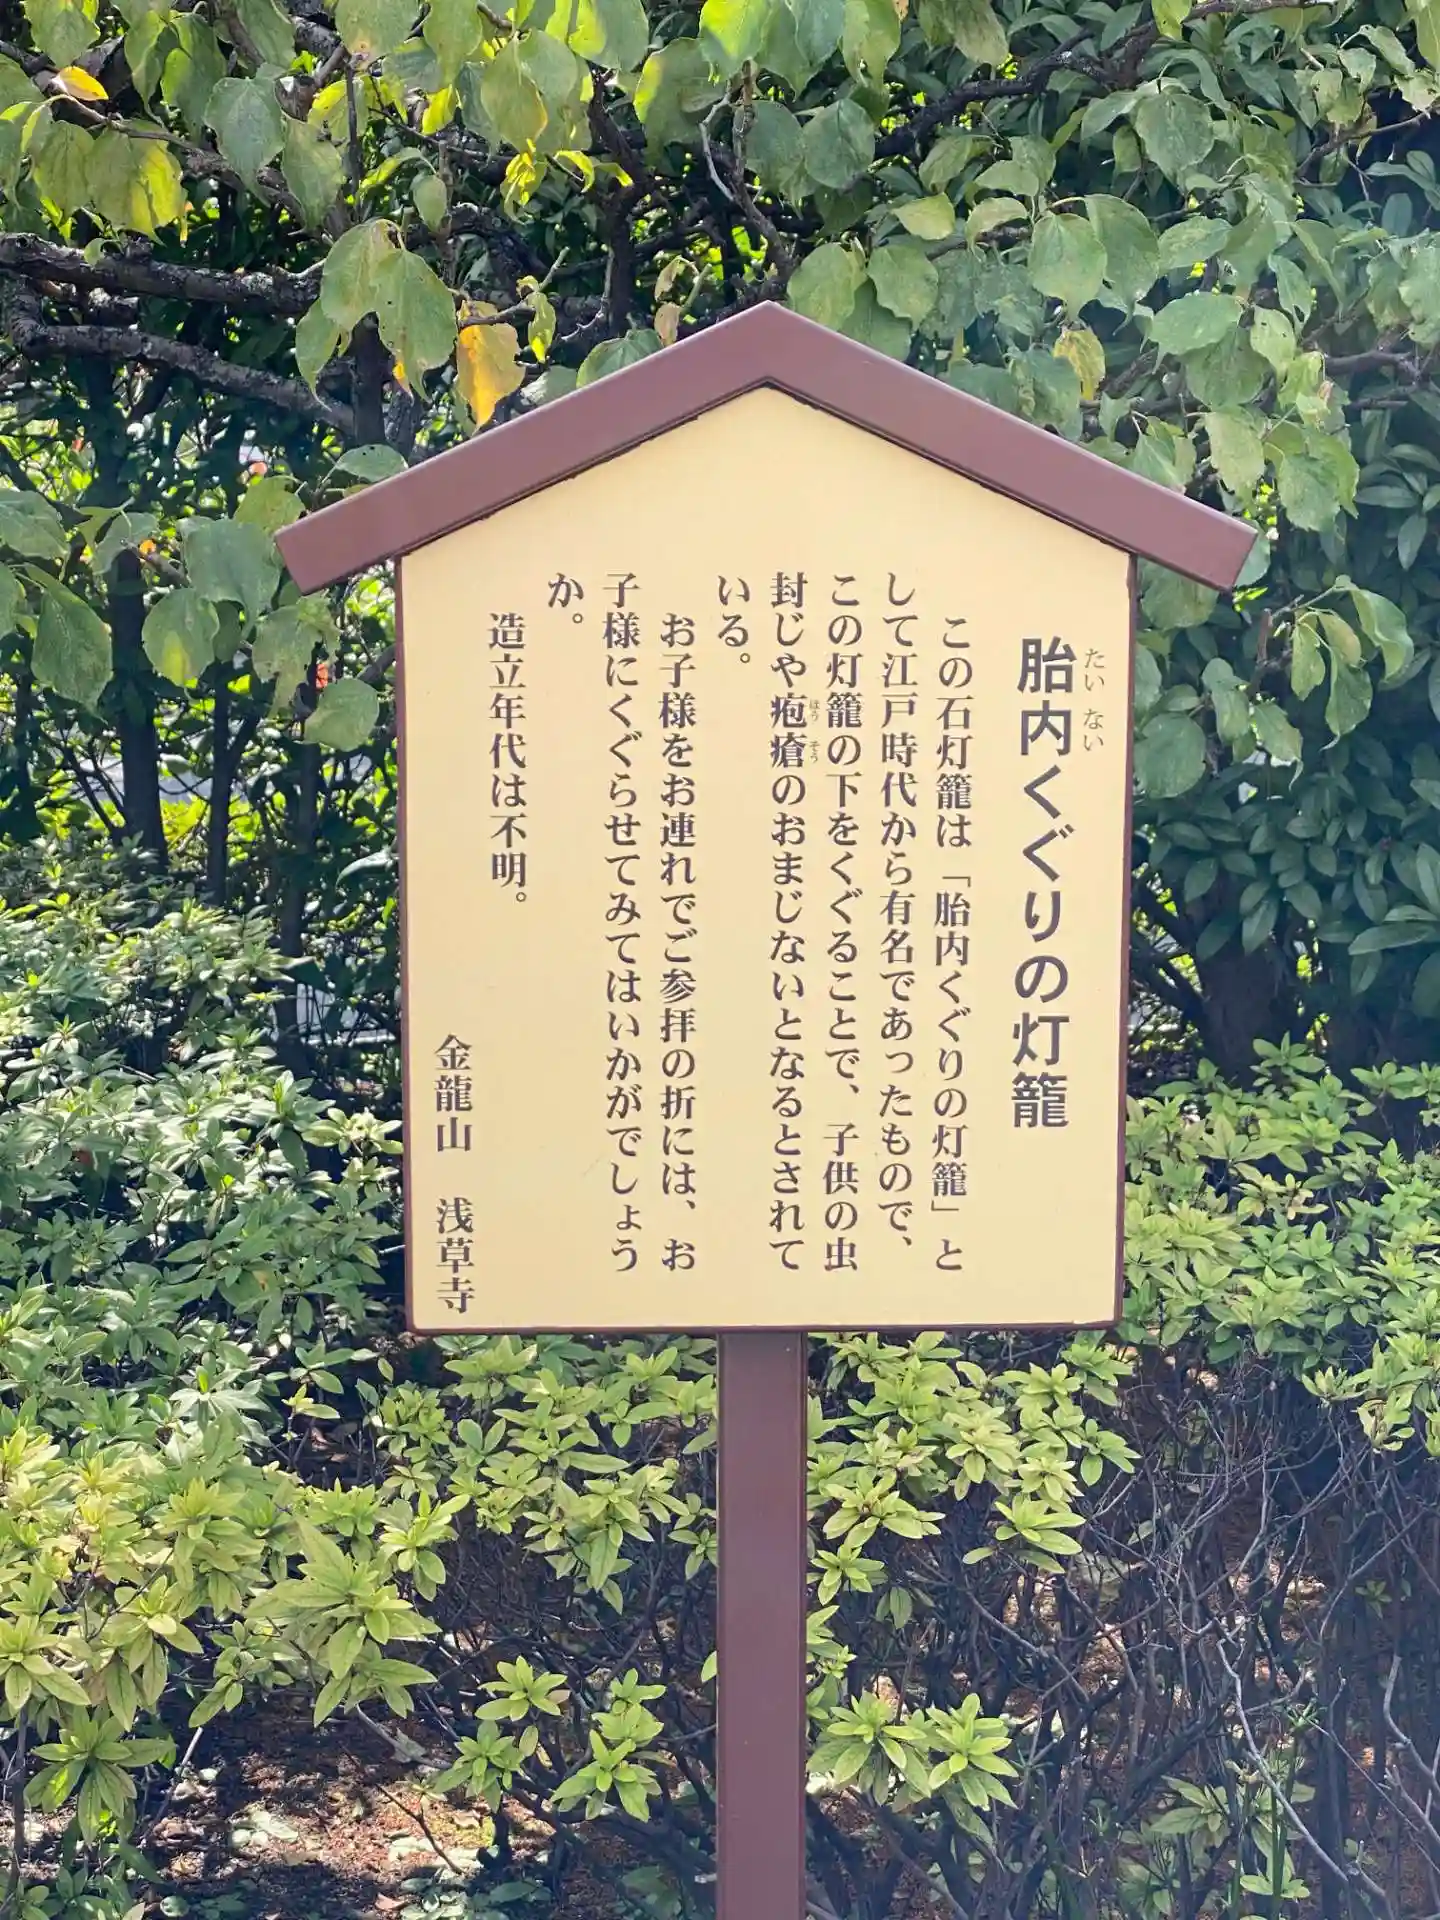 胎内くぐりの灯籠
たいない
この石灯籠は「胎内くぐりの灯籠」と
して江戸時代から有名であったもので、
この灯籠の下をくぐることで、子供の虫
封じや疱瘡のおまじないとなるとされて
ほうそう
いる。
お子様をお連れでご参拝の折には、お
子様にくぐらせてみてはいかがでしょう
か。
造立年代は不明。
金龍山　浅草寺